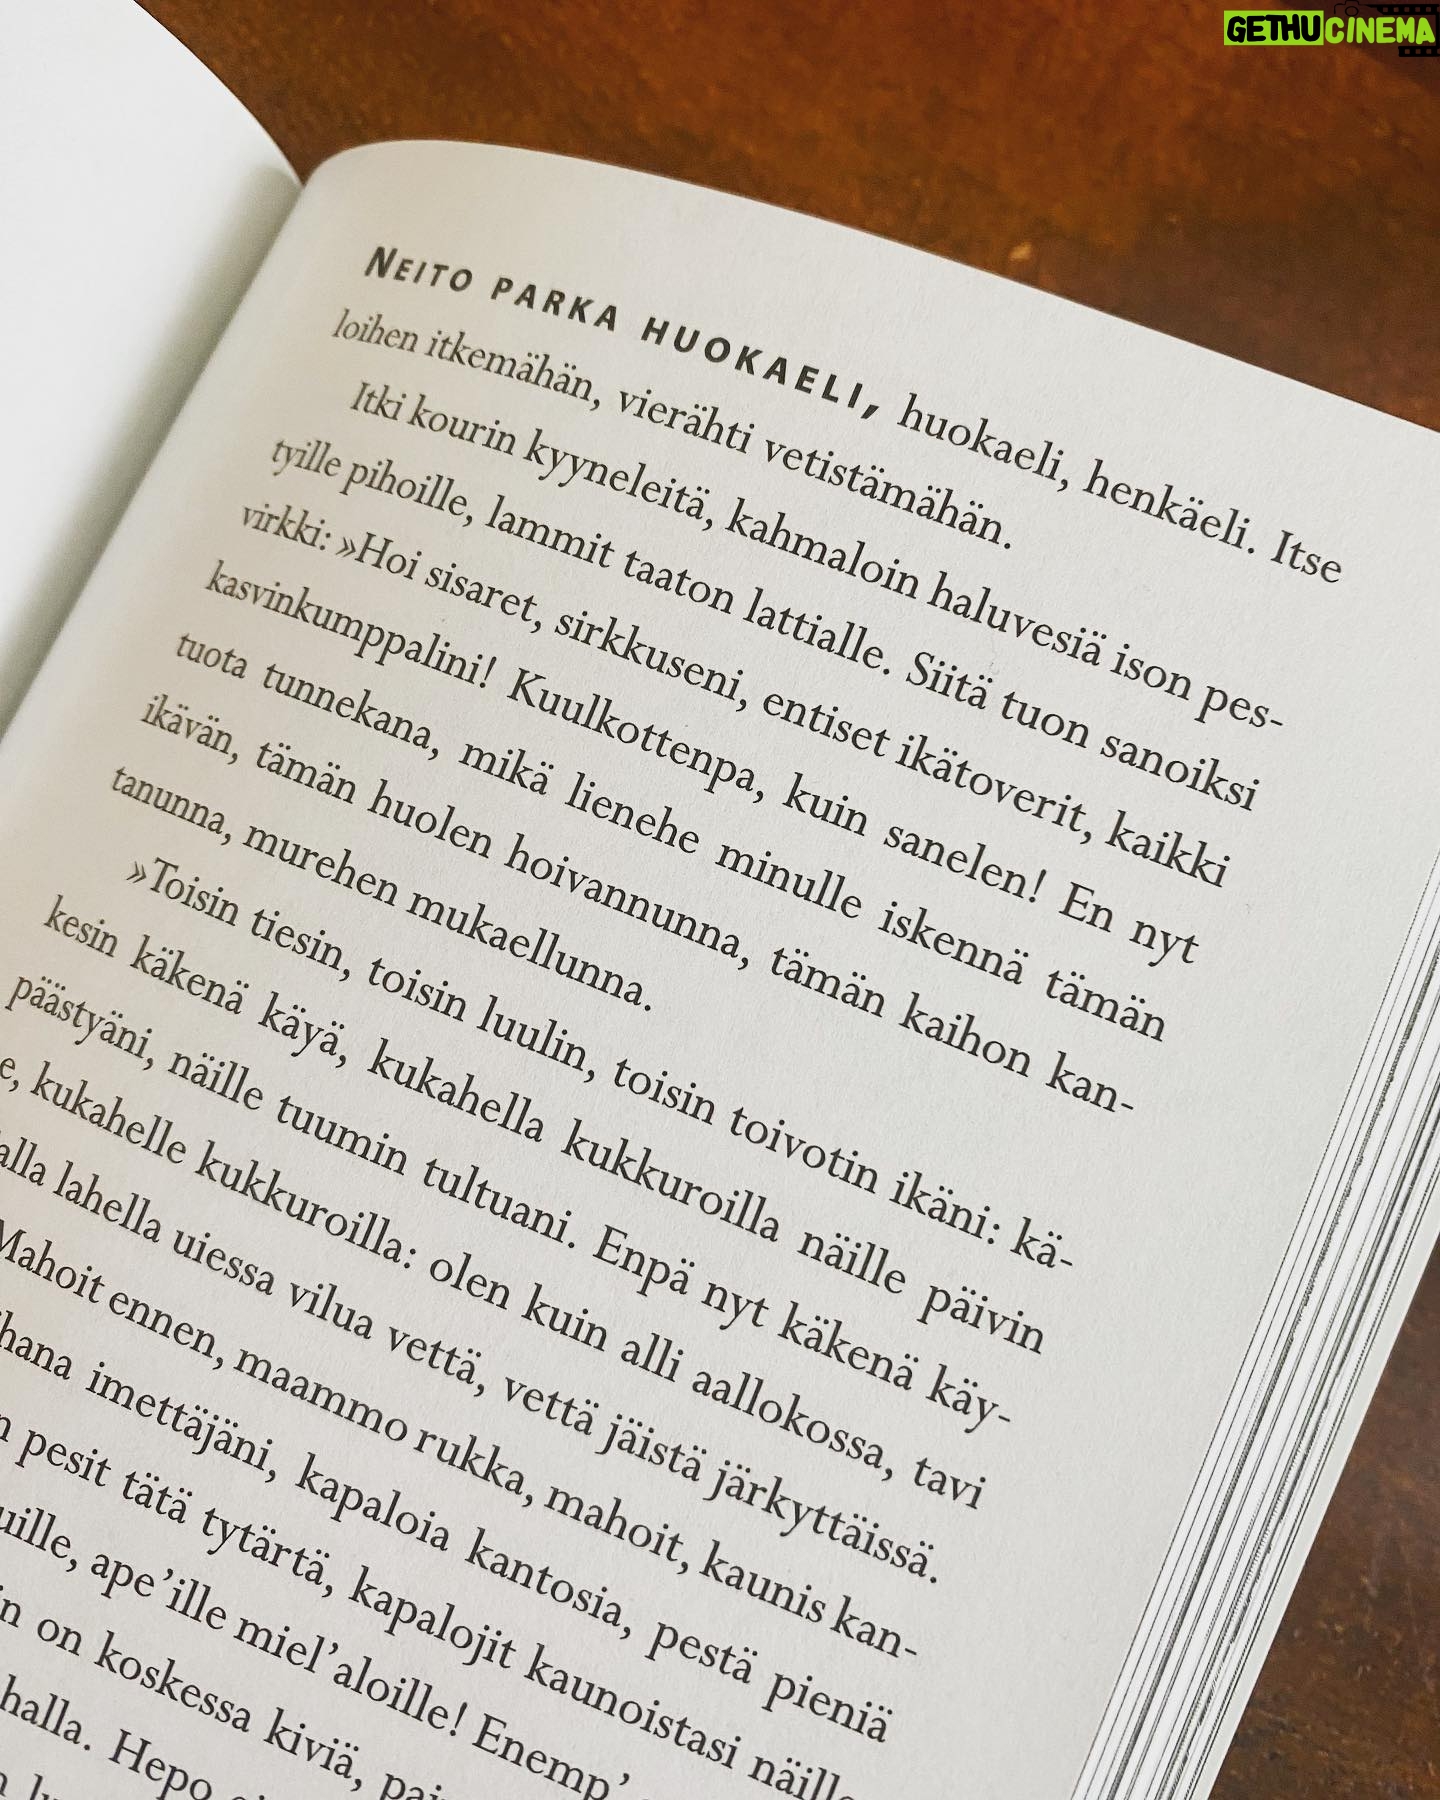 GETHUCINEMA
NEITO PARKA HUOKAELI, huokaeli, henkäeli. Itse
loihen itkemähän, vierähti vetistämähän.
Itki kourin kyyneleitä, kahmaloin haluvesiä ison pes-
tyille pihoille, lammit taaton lattialle. Siitä tuon sanoiksi
virkki: »Hoi sisaret, sirkkuseni, entiset ikätoverit, kaikki
kasvinkumppalini! Kuulkottenpa, kuin sanelen! En nyt
tuota tunnekana, mikä lienehe minulle iskennä tämän
ikävän, tämän huolen hoivannunna, tämän kaihon kan-
tanunna, murehen mukaellunna.
»Toisin tiesin, toisin luulin, toisin toivotin ikäni: kä-
kesin käkenä käyä, kukahella kukkuroilla näille päivin
päästyäni, näille tuumin tultuani. Enpä nyt käkenä käy-
e, kukahelle kukkuroilla: olen kuin alli aallokossa, tavi
alla lahella uiessa vilua vettä, vettä jäistä järkyttäissä.
Mahoit ennen, maammo rukka, mahoit, kaunis kan-
hana imettäjäni, kapaloia kantosia, pestä pieniä
n pesit tätä tytärtä, kapalojit kaunoistasi näille
uille, ape'ille miel'aloille! Enemp'
in on koskessa kiviä,
halla. Hepo